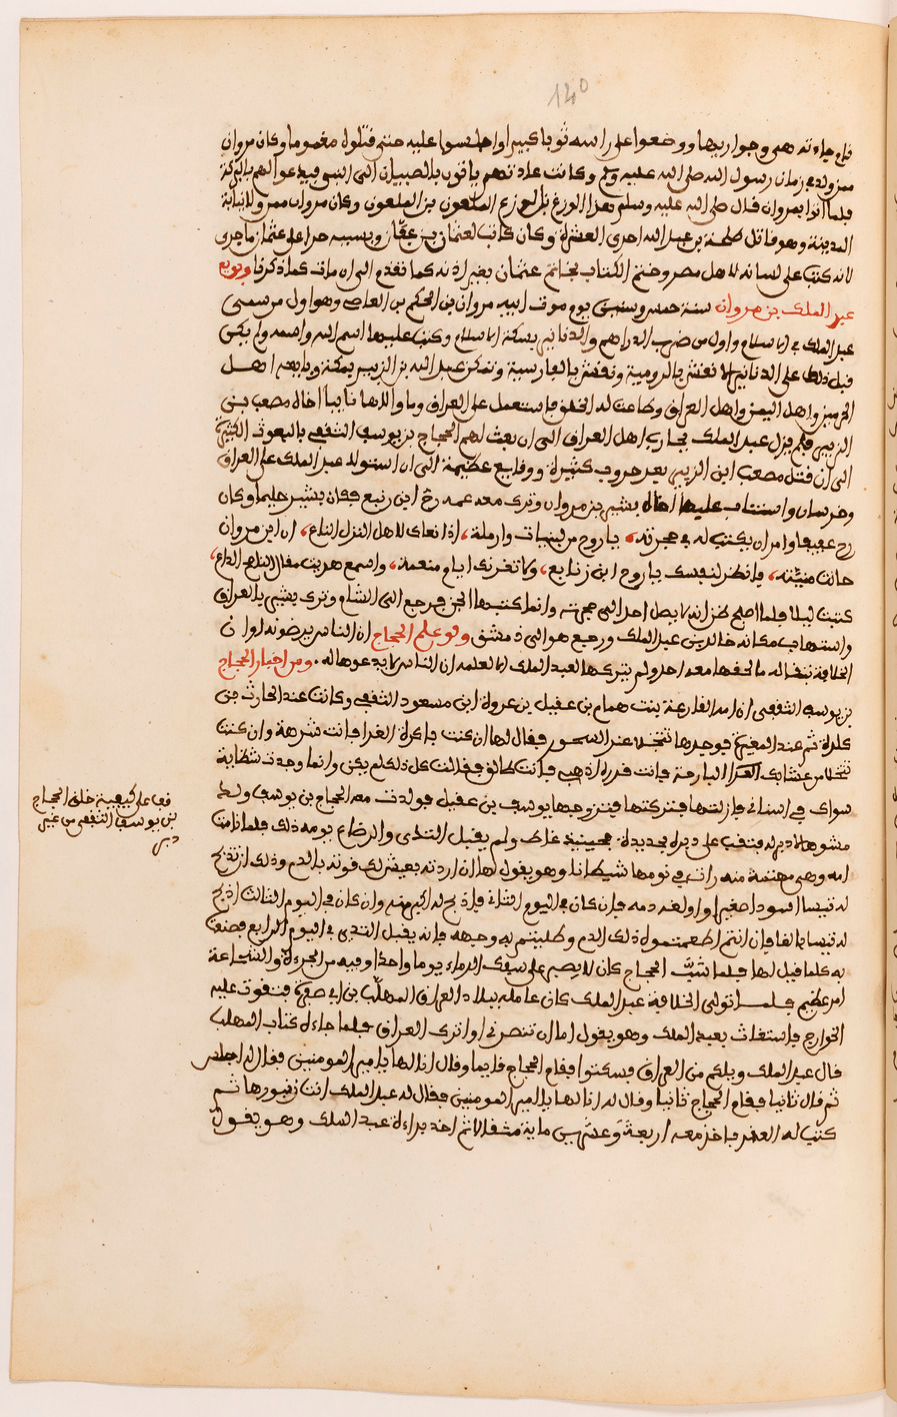 140
فلم جاءته هي وجواريها ووضعوا على راسه ثوبا كبيرا وجلسوا عليه حتى قتلوه مغموما وكان مروان
ممن ولد في زمان رسول الله صلى الله عليه وسلم وكانت عادتهم ياتون بالصبيان الى النبي فيدعوا لهم بالبركة
فلما اتوا بمروان قال صلى الله عليه وسلم هذا الوزغ بن الوزغ الملعون بن الملعون وكان مروان ممن ولي نيابة
المدينة وهو قاتل طلحة بن عبد الله احدى العشرة وكان كاتب لعثمان بن عفان وبسببه جرا على عثمان ما جرى
لانه كتب على لسانه لاهل مصر وختم الكتاب بخاتم عثمان بغير اذنه كما تقدم الى ان مات كما ذكرنا وبويع
عبد الملك بن مروان سنة خمس وستين يوم موت ابيه مروان بن الحكم بن العاص وهو اول من سمى
عبد الملك في الاسلام واول من ضرب الدراهم والدنانير بسكة الاسلام وكتب عليها اسم الله واسمه ولم يكن
قبل ذلك على الدنانير الا نقش بالرومية ونقش بالفارسية وتمكن عبد الله بن الزبير بمكة وبايعه اهل
الحرمين واهل اليمن واهل العراق وطاعت له الخلق فاستعمل على العراق وما والاها نايبا اخاه مصعب بن
الزبير فلم يزل عبد الملك يحارب اهل العراق الى ان بعث لهم الحجاج بن يوسف الثقفي بالبعوث الكثيرة
الى ان قتل مصعب ابن الزبير بعد حروب كثيرة ووقايع عظيمة الى ان استولا عبد الملك على العراق
وخرسان واستناب عليها اخاه بشير بن مروان وترك معه عمه روح ابن زنبع فكان بشير حليما وكان
روح عفيفا وامر ان يكتب له في حجرته، يا روح من لبنيات وارملة، اذا نعاك لاهل المنزل الناع، ان ابن مروان
حانت منيته، فانظر لنفسك يا روح ابن زنابع، ولا تغرنك ايام منعمة، واسمع هديت مقال الناصح الداع،
كتبت ليلا فلما اصبح ظن انه لا يصل احد الى حجرته وانما كتبها الجن فرجع الى الشام وترك بشير بالعراق
واستهاب مكانه خالد بن عبد الملك ورجع هو الى دمشق ولو علم الحجاج ان الناس يرضونه لوان
الخلافة تبقا له ما لحقها معه احد ولم يتركها لعبد الملك الا لعلمه ان الناس لا يدعوها له. ومن اخبار الحجاج
بن يوسف الثقفي ان امه الفارعة بنت همام بن عقيل بن عروة ابن مسعود الثقفي وكانت عند الحارث بن
كلدة ثم عند المغيرة فوجدها تتخلا عند السحور فقال لها ان كنت باكرة الغدا فانت شرهة وان كنت
تتخلا من عشايك البارحة فانت قذرة اذهبي فانت طالق فقالت كل ذلك لم يكن وانما وجدت شظاية
سواك في اسناني فازلتها فتركتها فتزوجها يوسف بن عقيل فولدت معه الحجاج بن يوسف ولد
مشوها لا دبر له فنقب على دبره بحديدة فحينيذ غاط ولم يقبل الثدى والرضاع يومه ذلك فلما نامت
امه وهي مهتمة منه رات في نومها شيطانا وهو يقول لها ان اردته يعيش لك قوته بالدم وذلك ان تذبح
له تيسا اسود صغيرا واولغه دمه فان كان في اليوم الثاني فاذبح له اكبر منه وان كان في اليوم الثالث اذبح
له تيسا سالفا فان انتم اطعمتموه ذلك الدم وطليتم به وجهه فانه يقبل الثدى في اليوم الرابع فصنعت
به كلما قيل لها فلما شب الحجاج كان لا يصبر على سفك الدماء يوما واحدا وفيه من الجرءة والشجاعة
امر عظيم فلما تولى الخلافة عبد الملك كان عامله ببلاد العراق المهلب بن ابي صفرة فتقوت عليه
الخوارج فاستغاث بعبد الملك وهو يقول اما ان تنصرني او اترك العراق فلما جاءه كتاب المهلب
قال عبد الملك ويلكم من العراق فسكتوا فقام الحجاج قايما وقال انا لها يا امير المومنين فقال له اجلس
ثم قال ثانيا فقام الحجاج ثانيا وقال له انا لها يا امير المومنين فقال له عبد الملك انت زنبورها ثم
كتب له العهد فاخذ معه اربعة وعشرين ماية مثقالا ثم اخذ براءة عبد الملك وهو يقول
قف على كيفية خلق الحجاج
بن يوسف الثقفي من غير
دبر